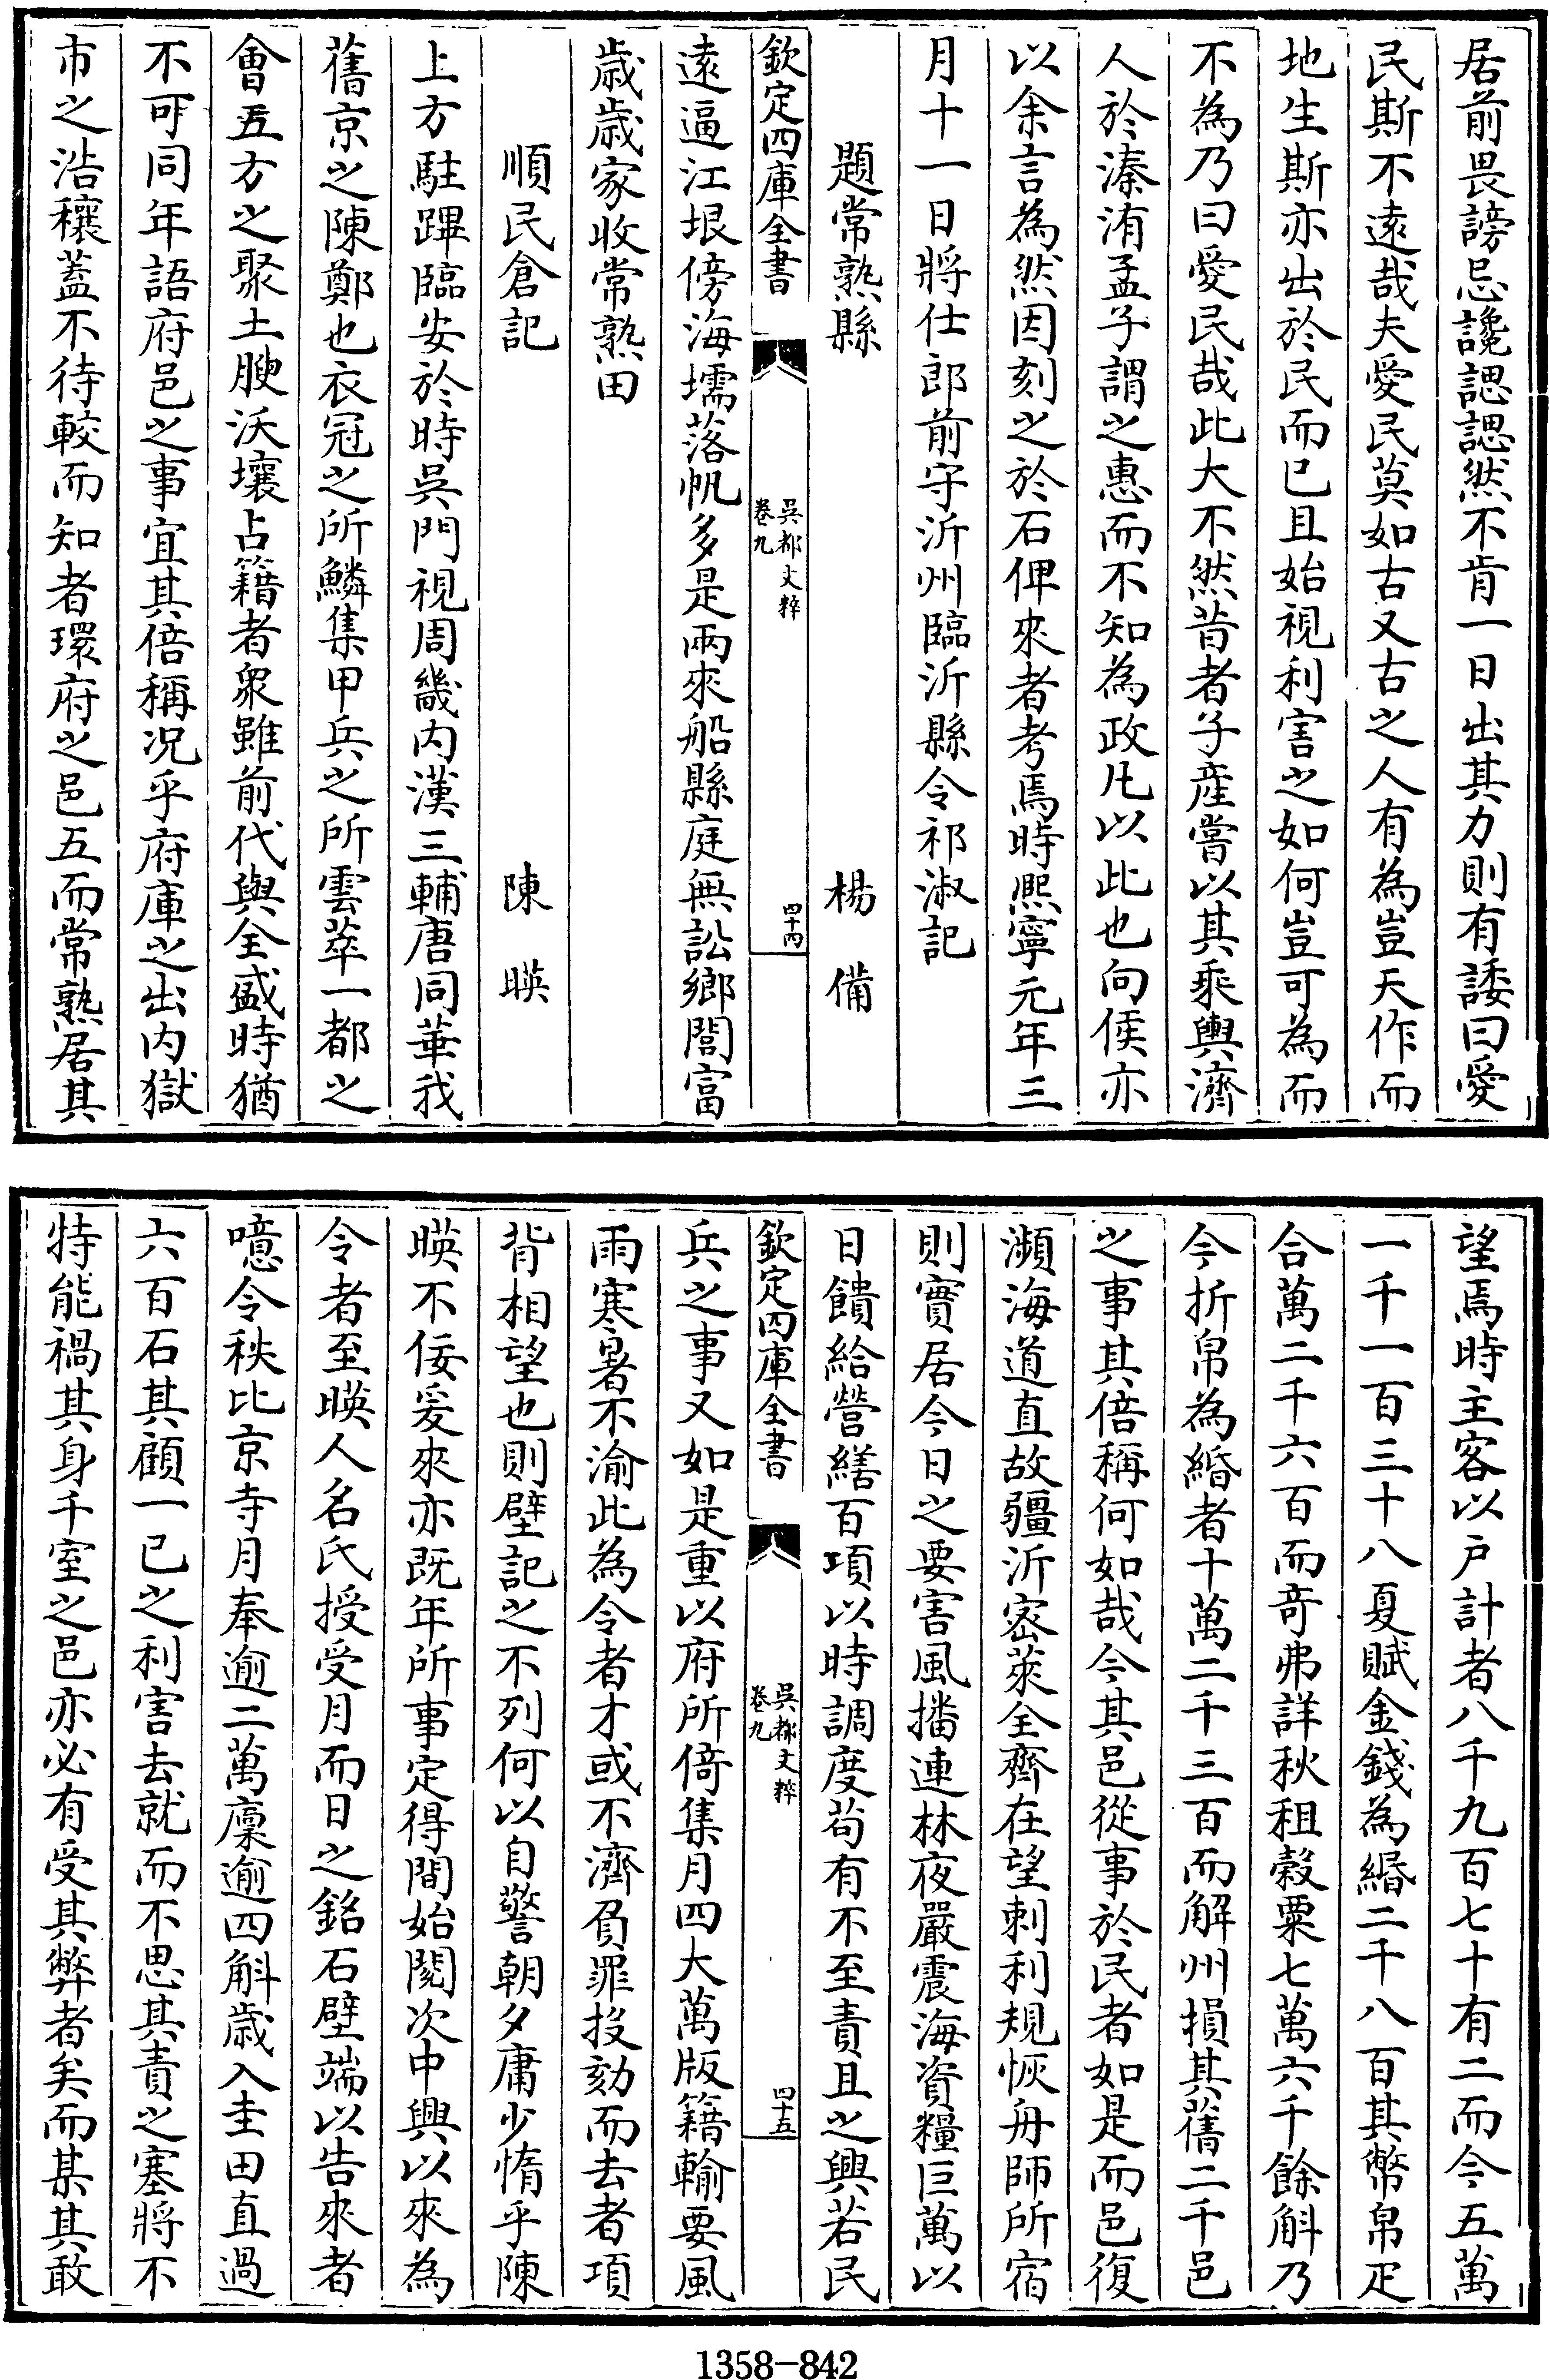 居前畏謗忌讒諰諰然不肯一日出其力則有諉曰愛
民斯不遠哉夫愛民莫如古又古之人有為豈天作而
地生斯亦出於民而已且始視利害之如何豈可為而
不為乃曰愛民哉此大不然昔者子產嘗以其乘輿濟
人於溱洧孟子謂之惠而不知為政凡以此也向侯亦
以余言為然因刻之於石俾來者考焉時熙寧元年三
月十一日將仕郎前守沂州臨沂縣令祁淑記
題常熟縣　楊備
欽定四庫全書　吳都文粹 卷九　四十四
遠逼江垠傍海壖落帆多是兩來船縣庭無訟鄉閭富
歲歲家收常熟田
順民倉記　陳暎
上方駐蹕臨安於時吳門視周畿内漢三輔唐同華我
舊京之陳鄭也衣冠之所鱗集甲兵之所雲萃一都之
會五方之聚土腴沃壤占籍者衆雖前代與全盛時猶
不可同年語府邑之事宜其倍稱况乎府庫之出内獄
市之浩穰葢不待較而知者環府之邑五而常熟居其
望焉時主客以户計者八千九百七十有二而今五萬
一千一百三十八夏賦金錢為緡二千八百其幣帛疋
合萬二千六百而奇弗詳秋租穀粟七萬六千餘斛乃
今折帛為緡者十萬二千三百而解州損其舊二千邑
之事其倍稱何如哉今其邑從事於民者如是而邑復
瀕海道直故疆沂密萊全齊在望刺利規恢舟師所宿
則實居今日之要害風播連林夜嚴震海資糧巨萬以
日饋給營繕百項以時調度苟有不至責且之興若民
欽定四庫全書　吳都文粹 卷九　四十五
兵之事又如是重以府所倚集月四大萬版籍輸要風
雨寒暑不渝此為令者才或不濟負罪投劾而去者項
背相望也則壁記之不列何以自警朝夕庸少惰乎陳
暎不佞爰來亦既年所事定得間始閱次中興以來為
令者至暎人名氏授受月而日之銘石壁端以告來者
噫令秩比京寺月奉逾二萬廩逾四斛歲入圭田直過
六百石其顧一已之利害去就而不思其責之塞將不
特能禍其身千室之邑亦必有受其弊者矣而某其敢
1358-842